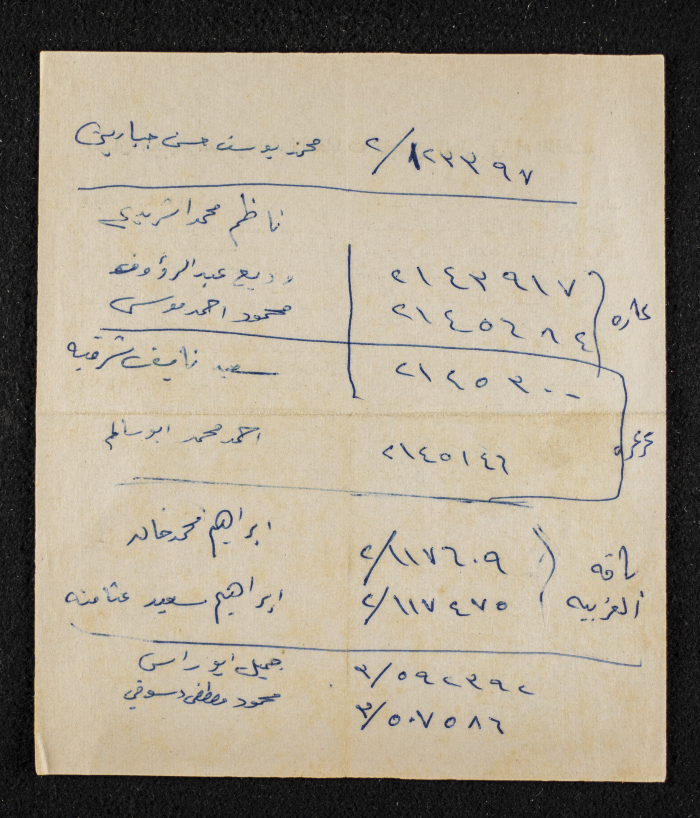 محمد يوسف حسن جبارين ٢/١٢٣٣٩٧
ناظم محمد اشريدي
وديع عبد الرؤوف ٢١٤٣٩١٧
محمود احمد موسى ٢١٤٥٦٨٤ عاره
سعيد نايف شرقيه ٢١٤٥٣٠٠
احمد محمد ابو سالم ٢١٤٥١٤٦ عرعره
ابراهيم محمد خالد ٢/١١٧٦٠٩ باقه
ابراهيم سعيد عثامنه ٢/١١٧٤٧٥ الغربيه
جميل ابو راس ٣/٥٩٢٣٩٢
محمود مصطفى دسوقي ٣/٥٠٧٥٨٦